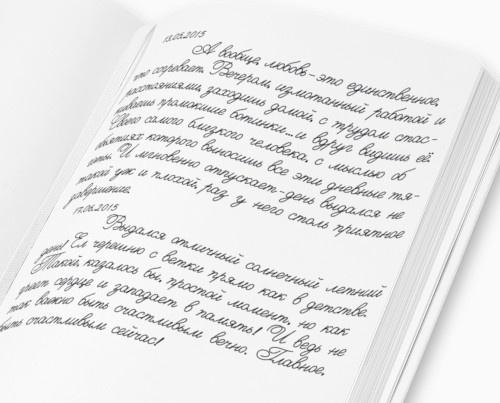 13.05.2015
А вообще, любовь-это единственное,
что согревает. Вечером, измотанный работой и
расстояниями, заходишь домой, с трудом стас-
киваешь промокшие ботинки...и вдруг видишь её.
Своего самого близкого человека, с мыслью об
объятиях которого выносишь все эти дневные тя-
готы. И мгновенно отпускает-день выдался не
такой уж и плохой, раз у него столь приятное
завершение.
17.06.2015
Выдался отличный солнечный летний
день! Ел черешню с ветки прямо как в детстве.
Такой, казалось бы, простой момент, но как
греет сердце и западает в память! И ведь не
так важно быть счастливым вечно. Главное,
быть счастливым сейчас!